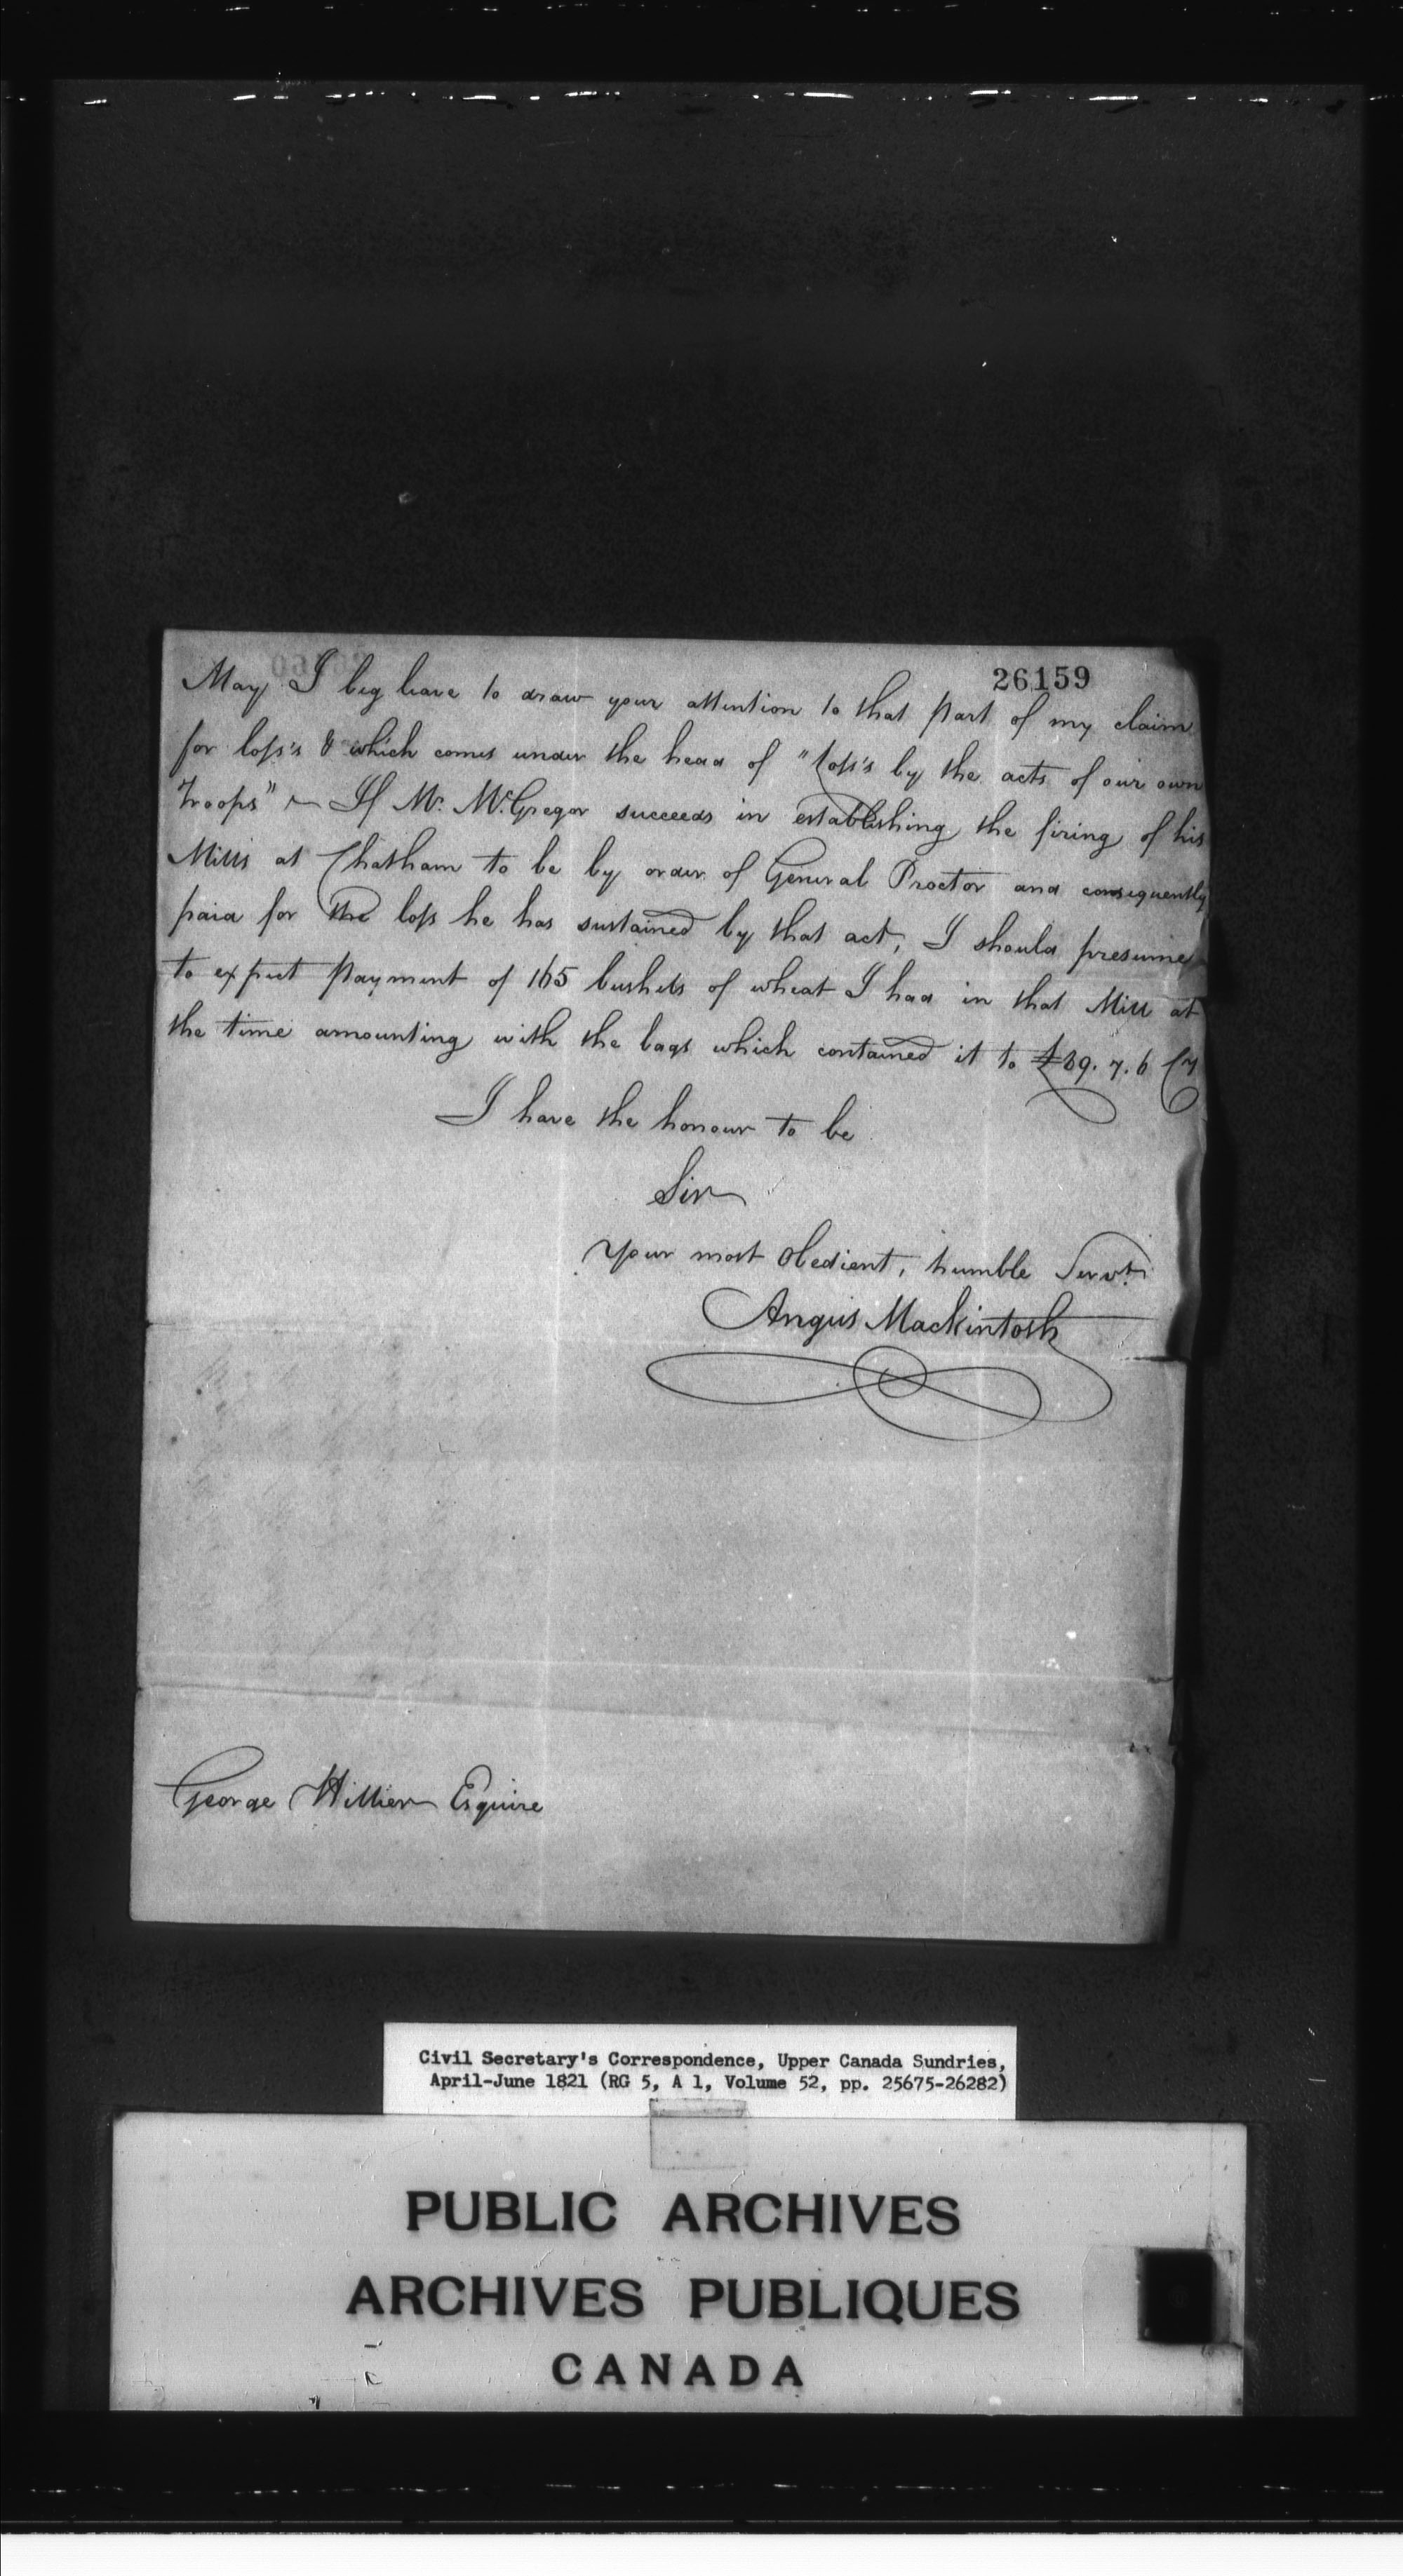 26159
May I beg leave to draw your attention to that part of my claim
for loss's & which comes under the head of "Loss's by the acts of our own
Troops" — If Mr. McGregor succeeds in establishing the firing of his
Mills at Chatham to be by order of General Proctor and consequently
paid for the loss he has sustained by that act, I should presume
to expect payment of 165 bushels of wheat I had in that Mill at
the time amounting with the bags which contained it to £89.7.6 Cy
I have the honour to be
Sir
Your most Obedient, humble Servt.
Angus Mackintosh
George Hillier Esquire
Civil Secretary's Correspondence, Upper Canada Sundries,
April-June 1821 (RG 5, A 1, Volume 52, pp. 25675-26282)
PUBLIC ARCHIVES
ARCHIVES PUBLIQUES
CANADA